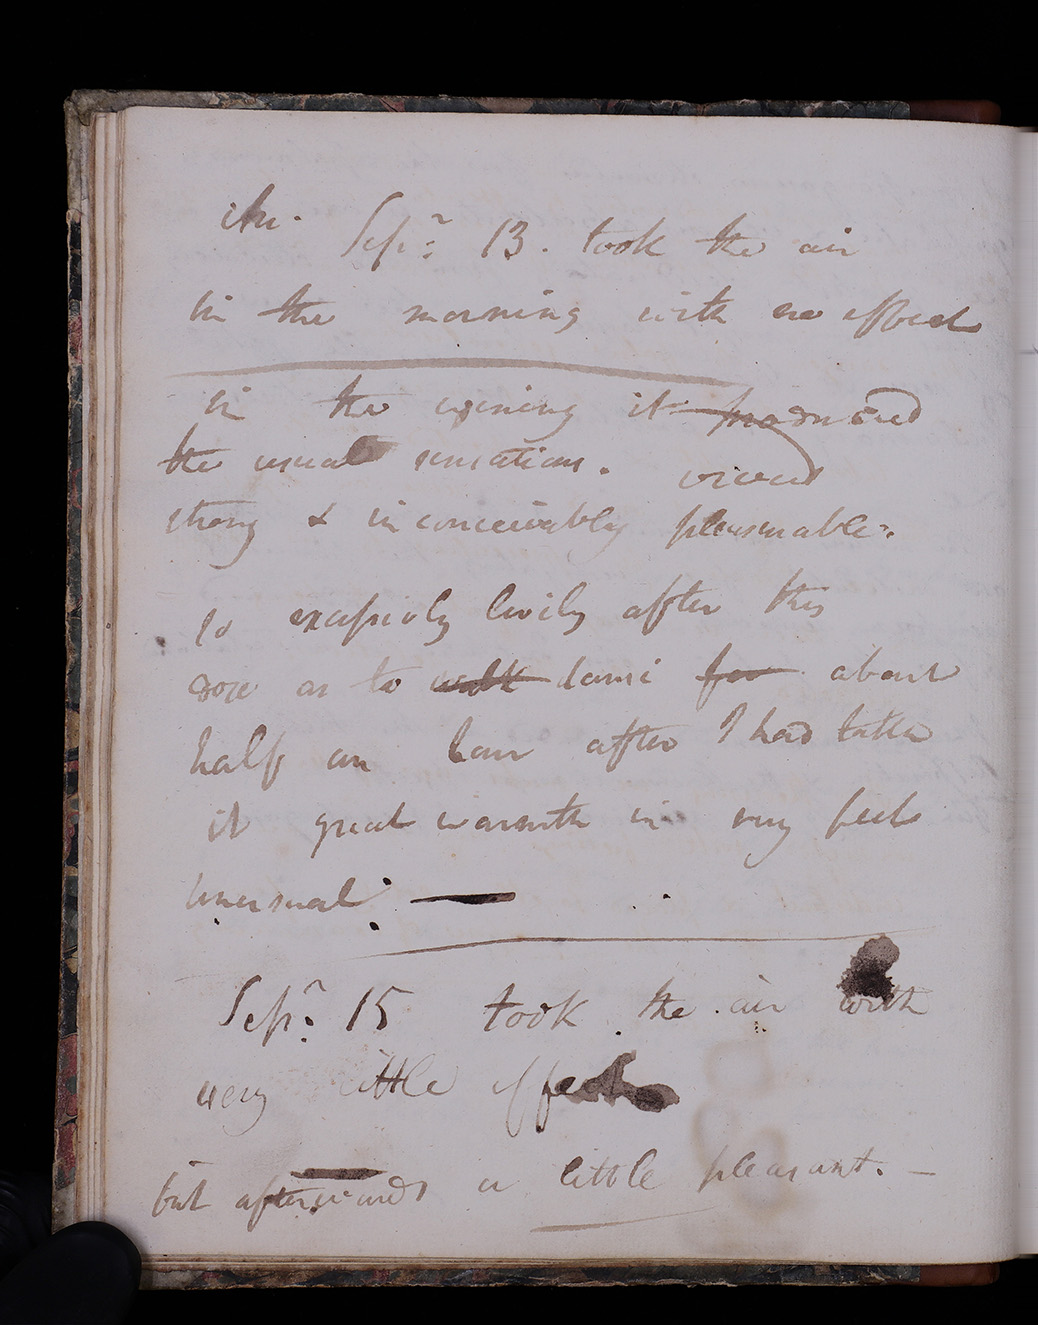 Sepr. 13. took the air
in the morning with no effect
in the evening it produced
the usual sensations. viewed
strong & inconceivably pleasurable.
so excessivly livily after this
dose as to walk dance for about
half an hour after I had taken
it great warmth in my feet
unusual —
Sepr. 15 took the air with
very little effect
but afterwards a little pleasant. —